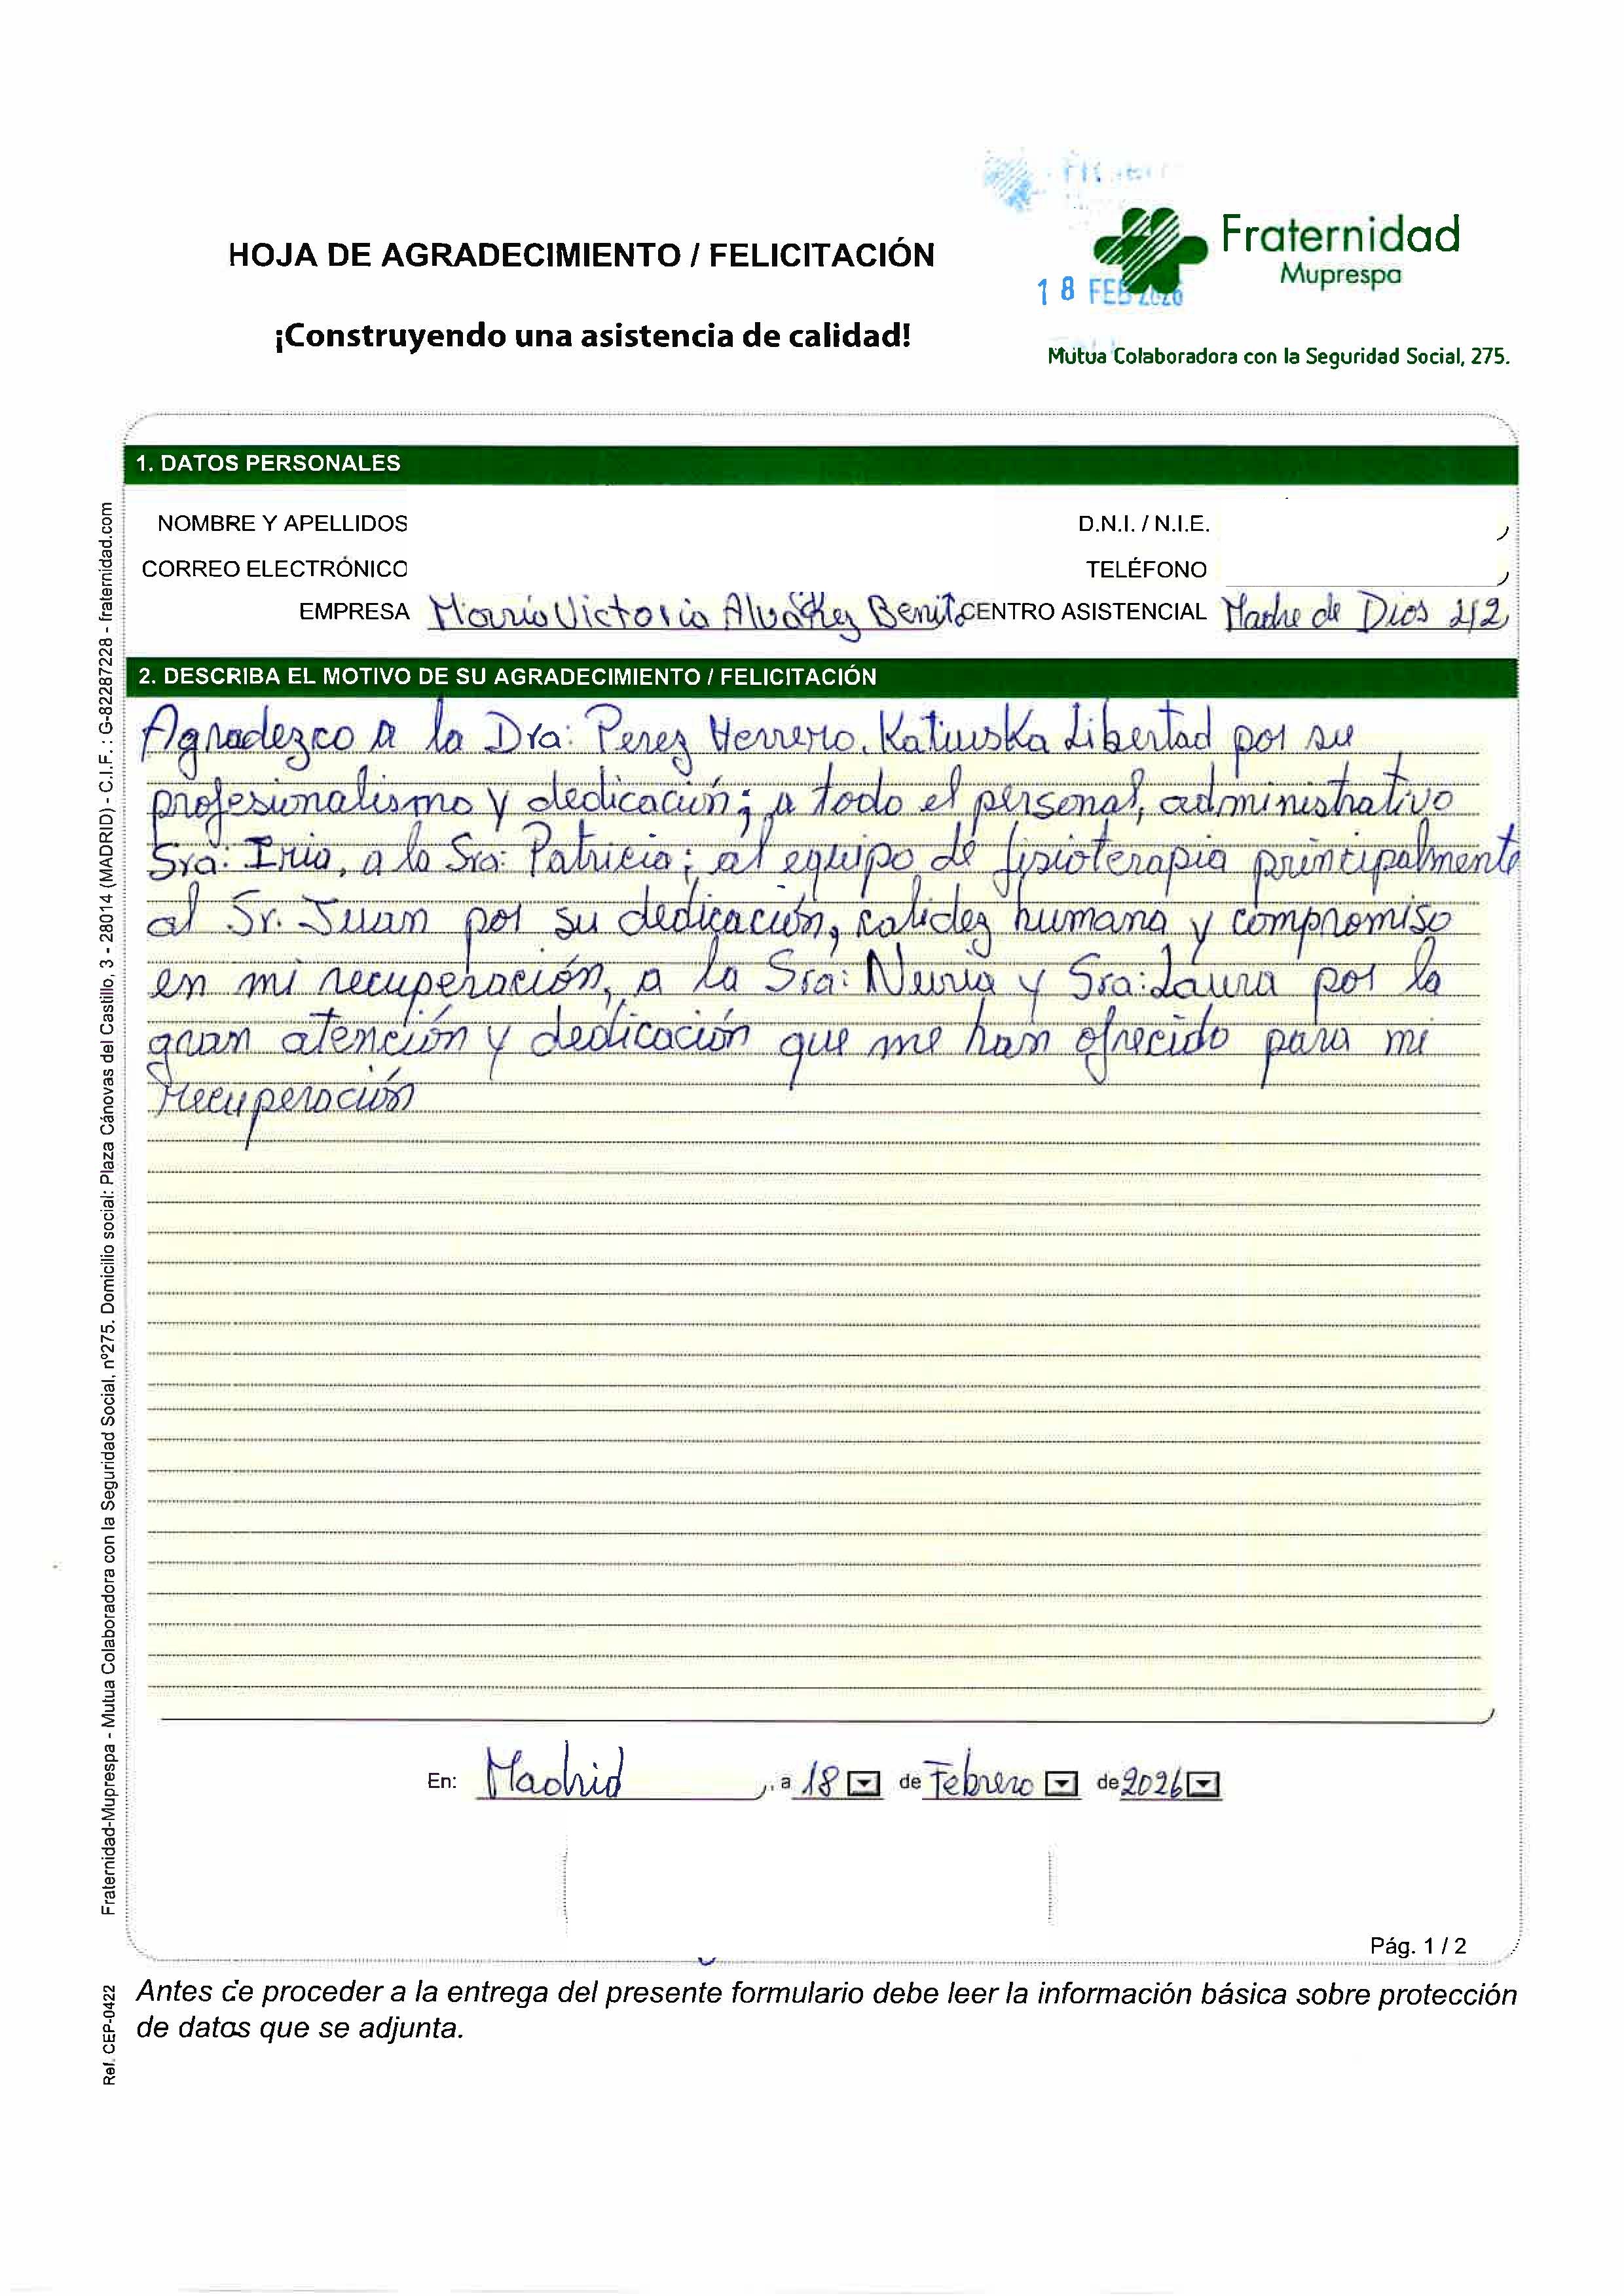 HOJA DE AGRADECIMIENTO / FELICITACIÓN
¡Construyendo una asistencia de calidad!
Fraternidad
Muprespa
18 FEB 2026
Mutua Colaboradora con la Seguridad Social, 275.
1. DATOS PERSONALES
NOMBRE Y APELLIDOS D.N.I. / N.I.E.
CORREO ELECTRÓNICO TELÉFONO
EMPRESA María Victoria Benito CENTRO ASISTENCIAL Madre de Dios
2. DESCRIBA EL MOTIVO DE SU AGRADECIMIENTO / FELICITACIÓN
Agradezco a la Dra: Perez Herrero, Katiuska Libertad por su
profesionalismo y dedicación; a todo el personal, administrativo
Sra: Iria, a la Sra: Patricia; al equipo de fisioterapia principalmente
al Sr. Juan por su dedicación, calidez humana y compromiso
en mi recuperación, a la Sra: Nuria y Sra: Laura por la
gran atención y dedicación que me han ofrecido para mi
recuperación
En: Madrid, a 18 de Febrero de 2026
Pág. 1 / 2
Antes de proceder a la entrega del presente formulario debe leer la información básica sobre protección
de datos que se adjunta.
Fraternidad-Muprespa - Mutua Colaboradora con la Seguridad Social, nº275. Domicilio social: Plaza Cánovas del Castillo, 3 - 28014 (MADRID) - C.I.F. : G-82287228 - fraternidad.com
Ref. CEP-0422